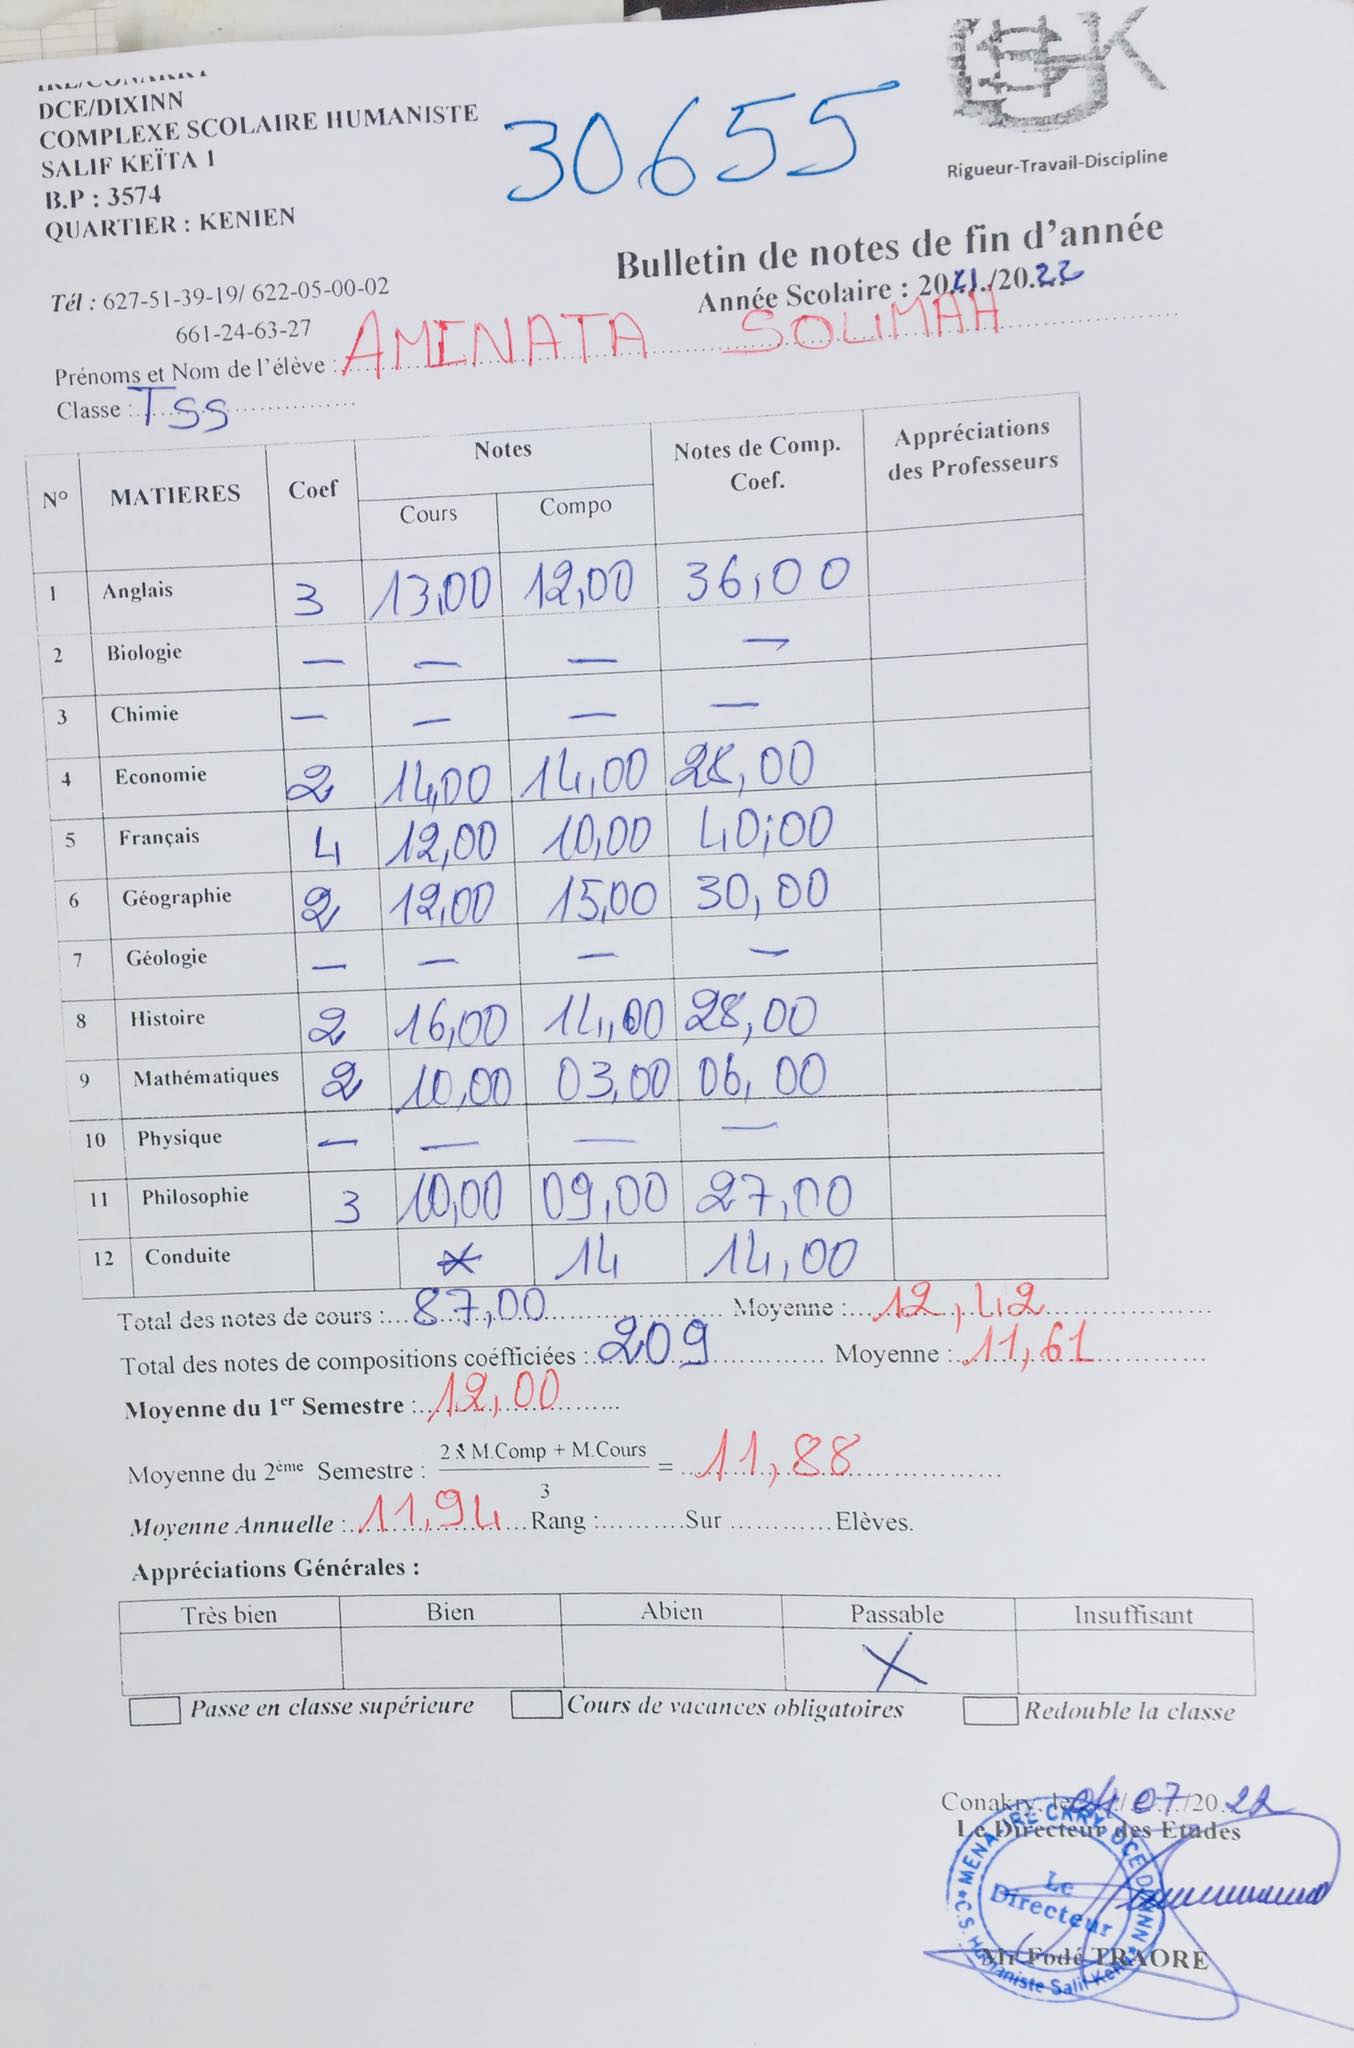 IRE/CONAKRY
DCE/DIXINN
COMPLEXE SCOLAIRE HUMANISTE
SALIF KEÏTA 1
B.P : 3574
QUARTIER : KENIEN
30655
Rigueur-Travail-Discipline
Bulletin de notes de fin d'année
Année Scolaire : 2021/2022
Tél : 627-51-39-19/ 622-05-00-02
661-24-63-27
Prénoms et Nom de l'élève : AMINATA SOLIMAH
Classe : TSS
N° MATIERES Coef Notes Notes de Comp. Coef. Appréciations des Professeurs
Cours Compo
1 Anglais 3 13,00 12,00 36,00
2 Biologie — — — —
3 Chimie — — — —
4 Economie 2 14,00 14,00 28,00
5 Français 4 12,00 10,00 40,00
6 Géographie 2 12,00 15,00 30,00
7 Géologie — — — —
8 Histoire 2 16,00 14,00 28,00
9 Mathématiques 2 10,00 03,00 06,00
10 Physique — — — —
11 Philosophie 3 10,00 09,00 27,00
12 Conduite 14 14,00
Total des notes de cours : 87,00 Moyenne : 12,42
Total des notes de compositions coéfficiées : 209 Moyenne : 11,61
Moyenne du 1er Semestre : 12,00
Moyenne du 2ème Semestre : 2 X M.Comp + M.Cours / 3 = 11,88
Moyenne Annuelle : 11,94 Rang :.........Sur ............Elèves.
Appréciations Générales :
Très bien Bien Abien Passable Insuffisant
X
Passe en classe supérieure Cours de vacances obligatoires Redouble la classe
Conakry, le 04/07/2022
Le Directeur des Etudes
Le Directeur
C.S. Humaniste Salif Keita
Mr Fodé TRAORE